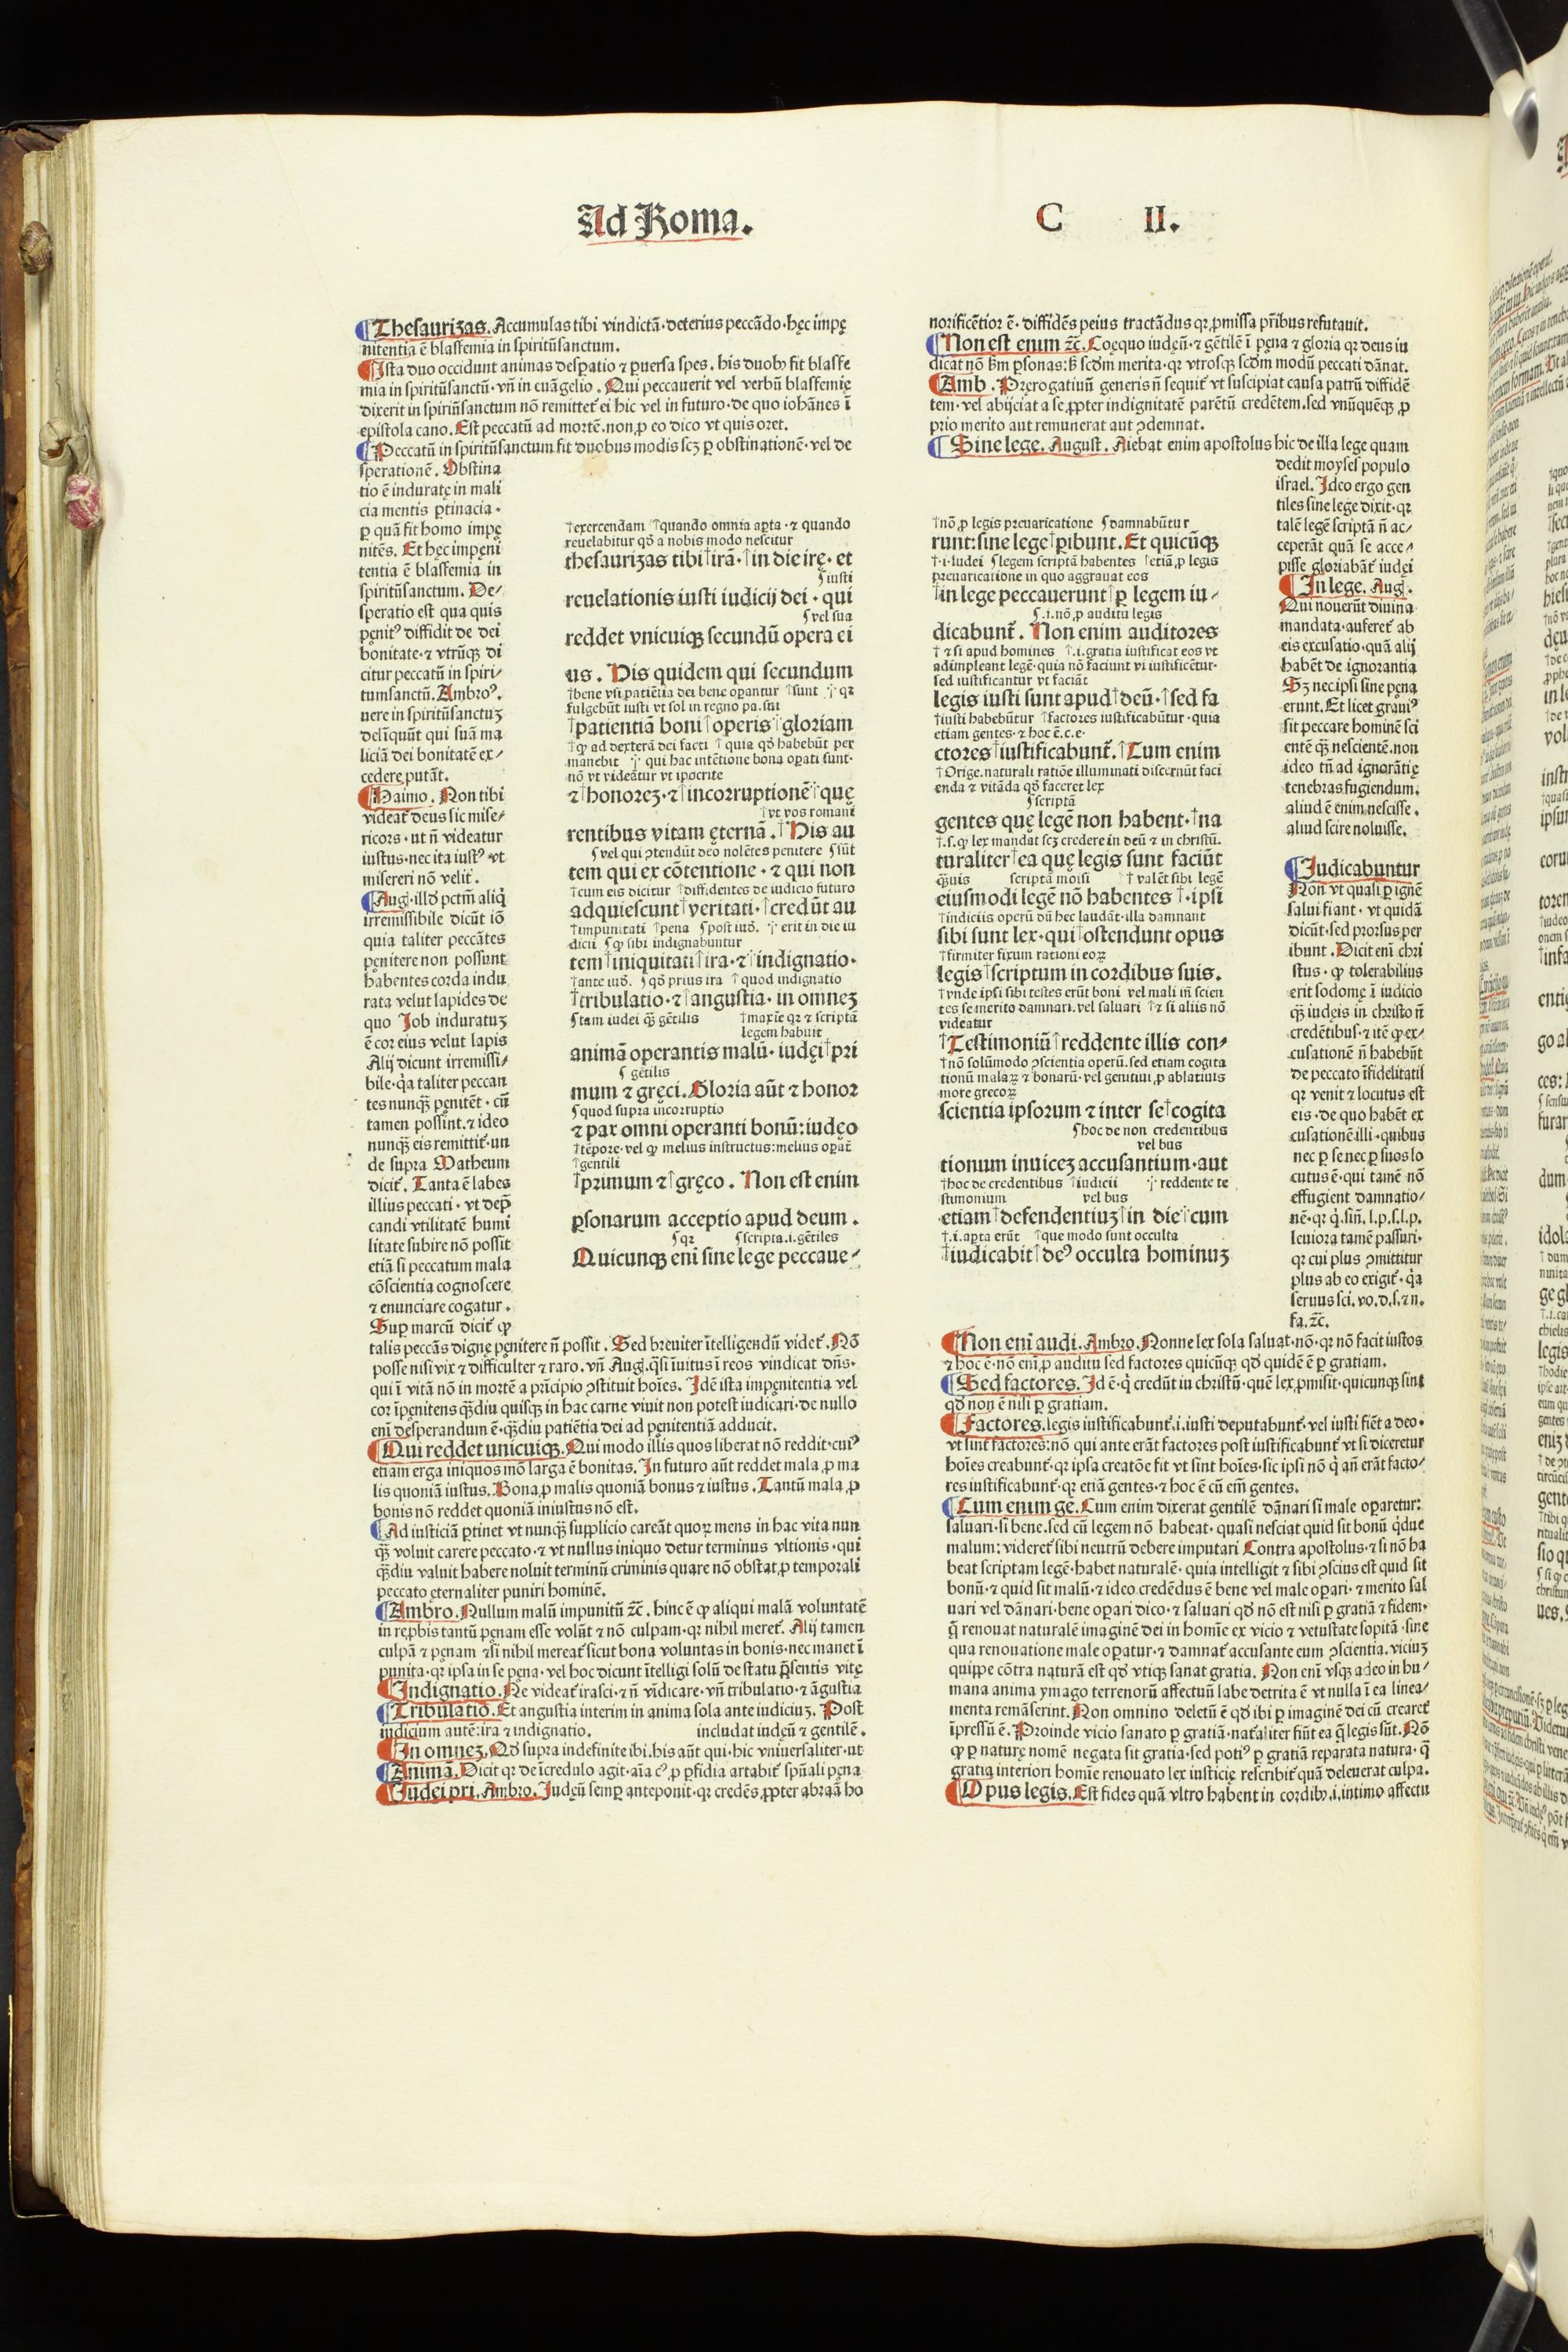 Ad Roma.
C II.
¶Thesaurizas. Accumulas tibi vindictã·deterius peccãdo·hęc impę
nitentia ẽ blasfemia in spiritũsanctum.
¶Ista duo occidunt animas despatio ⁊ puersa spes. his duob9 fit blasfe
mia in spiritũsanctũ·vñ in euãgelio. Qui peccauerit vel verbũ blasfemię
dixerit in spiritũsanctum nõ remittet̃ ei hic vel in futuro·de quo iohãnes ĩ
epistola cano. Est peccatũ ad mortẽ.non ꝓ eo dico vt quis oret.
¶Peccatũ in spiritũsanctum fit duobus modis scꝫ ꝑ obstinationẽ·vel de
sperationẽ. Obstina
tio ẽ induratę in mali
cia mentis ꝑtinacia·
ꝑ quã fit homo impę
nitẽs. Et hęc impęni
tentia ẽ blasfemia in
spiritũsanctum. De/
speratio est qua quis
pęnitꝰ diffidit de dei
bonitate·⁊ vtrũqꝫ di
citur peccatũ in spiri/
tumsanctũ. Ambroꝰ.
uere in spiritũsanctuꝫ
delĩquũt qui suã ma
liciã dei bonitatẽ ex/
cedere putãt.
¶Haimo. Non tibi
videat̃ deus sic mise/
ricors·ut ñ videatur
iustus·nec ita iustꝰ vt
misereri nõ velit̃.
¶Aug̃·illð pctm̃ aliq̃
irremissibile dicũt iõ
quia taliter peccãtes
pęnitere non possunt
habentes corda indu
rata velut lapides de
quo Iob induratuꝫ
ẽ cor eius velut lapis
Alij dicunt irremissi/
bile·q̃a taliter peccan
tes nunqꝫ̃ pęnitẽt·cũ
tamen possĩnt.⁊ ideo
nunqꝫ̃ eis remittit̃·un
de supra Matheum
dicit̃. Tanta ẽ labes
illius peccati·vt dep̃
candi vtilitatẽ humi
litate subire nõ possit
etiã si peccatum mala
cõscientia cognoscere
⁊ enunciare cogatur.
Sup marcũ dicit̃ ꝙ
talis peccãs dignę pęnitere ñ possit. Sed breuiter ĩtelligendũ videt̃. Nõ
posse nisi vix ⁊ difficulter ⁊ raro. vñ Augl̃.q̃si ĩuitus ĩ reos vindicat dñs·
qui ĩ vitã nõ in mortẽ a pr̃icipio ꝯstituit hoĩes. Idẽ ista impęnitentia vel
cor ĩpęnitens qꝫ̃diu quisqꝫ in hac carne viuit non potest iudicari·de nullo
enĩ desperandum ẽ·qꝫ̃diu patiẽtia dei ad pęnitentiã adducit.
¶Qui reddet unicuiqꝫ. Qui modo illis quos liberat nõ reddit·cuiꝰ
etiam erga iniquos mõ larga ẽ bonitas. In futuro aũt reddet mala ꝓ ma
lis quoniã iustus. Bona ꝓ malis quoniã bonus ⁊ iustus. Tantũ mala ꝓ
bonis nõ reddet quoniã iniustus nõ est.
¶Ad iusticiã ꝑtinet vt nunqꝫ̃ supplicio careãt quoꝝ mens in hac vita nun
qꝫ̃ voluit carere peccato·⁊ vt nullus iniquo detur terminus vltionis·qui
qꝫ̃diu valuit habere noluit terminũ criminis quare nõ obstat ꝓ temporali
peccato ęternaliter puniri hominẽ.
¶Ambro. Nullum malũ impunitũ ⁊c̃. hinc ẽ ꝙ aliqui malã voluntatẽ
in rep̃bis tantũ pęnam esse volũt ⁊ nõ culpam·qꝛ nihil meret̃. Alij tamen
culpã ⁊ pęnam ⁊si nihil mereat̃ sicut bona voluntas in bonis·nec manet ĩ
punita·qꝛ ipsa in se pęna·vel hoc dicunt ĩtelligi solũ de statu p̃sentis vitę
¶Indignatio. Ne videat̃ irasci·⁊ ñ vĩdicare·vñ tribulatio·⁊ ãgustia
¶Tribulatio. Et angustia interim in anima sola ante iudiciuꝫ. Post
iudicium autẽ:ira ⁊ indignatio. includat iudęũ ⁊ gentilẽ.
¶In omneꝫ. Qð supra indefinite ibi.his aũt qui·hic vniuersaliter·ut
¶Animã. Dicit qꝛ de ĩcredulo agit·aĩa c̃ꝰ ꝓ ꝑfidia artabit̃ spũali pęna
¶Iudęi pri. Ambro. Iudęũ semꝑ anteponit·qꝛ credẽs ꝓpter abraã ho
†exercendam †quando omnia aꝑta·⁊ quando
reuelabitur qð a nobis modo nescitur
thesaurizas tibi†irã·†in die irę·et
ʃiusti
reuelationis iusti iudicij dei·qui
ʃvel sua
reddet vnicuiqꝫ secundũ opera ei
us. His quidem qui secundum
†bene vsi patiẽtia dei bene oꝑantur †sunt ·ꝉ·qꝛ
fulgebũt iusti vt sol in regno pa.sui
†patientiã boni†operis†gloriam
†ꝙ ad dexterã dei facti †quia qð habebũt per
manebit ·ꝉ· qui hac intẽtione bona oꝑati sunt·
nõ vt videãtur vt ipocrite
⁊†honoreꝫ·⁊†incorruptionẽ†quę
†vt vos romani
rentibus vitam ęternã.†His au
ʃvel qui ꝯtendũt deo nolẽtes penitere ʃsũt
tem qui ex cõtentione·⁊ qui non
†cum eis dicitur †diffidentes de iudicio futuro
adquiescunt†veritati·†credũt au
†impunitati †pena ʃpost iuð. ·ꝉ· erit in die iu
dicii ʃꝙ sibi indignabuntur
tem†iniquitati†ira·⁊†indignatio·
†ante iuð. ʃqð prius ira †quod indignatio
†tribulatio·⁊†angustia·in omneꝫ
ʃtam iudei qꝫ̃ gẽtilis †maxĩe qꝛ ⁊ scriptã
legem habuit
animã operantis malũ·iudęi†pri
ʃgẽtilis
mum ⁊ gręci. Gloria aũt ⁊ honor
ʃquod supra incorruptio
⁊ pax omni operanti bonũ:iudęo
†tẽpore·vel ꝙ melius instructus:melius oꝑat̃
†gentili
†primum ⁊†gręco. Non est enim
ꝑsonarum acceptio apud deum.
ʃqꝛ ʃscripta.i.gẽtiles
Quicunqꝫ enĩ sine lege peccaue/
norificẽtior ẽ·diffidẽs peius tractãdus qꝛ ꝓmissa pr̃ibus refutauit.
¶Non est enim ⁊c̃. Coęquo iudęũ·⁊ gẽtilẽ ĩ pęna ⁊ gloria qꝛ deus iu
dicat nõ ẞm ꝑsonas:ẞ scðm merita·qꝛ vtrosqꝫ scðm modũ peccati dãnat.
¶Amb. Pręrogatiuũ generis ñ sequit̃ vt suscipiat causa patrũ diffidẽ
tem·vel abijciat a se ꝓpter indignitatẽ parẽtũ credẽtem.sed vnũquẽqꝫ ꝓ
prio merito aut remunerat aut ꝯdemnat.
¶Sine lege. August. Aiebat enim apostolus hic de illa lege quam
dedit moysęs populo
israel. Ideo ergo gen
tiles sine lege dixit·qꝛ
talẽ legẽ scriptã ñ ac/
ceperãt quã se acce/
pisse gloriabãt̃ iudęi
¶In lege. Augl̃.
Qui nouerũt diuina
mandata·auferet̃ ab
eis excusatio·quã alij
habẽt de ignorantia
Sꝫ nec ipsi sine pęna
erunt. Et licet grauiꝰ
sit peccare hominẽ sci
entẽ qꝫ̃ nescientẽ.non
ideo tñ ad ignorãtię
tenebras fugiendum.
aliud ẽ enim nescisse.
aliud scire noluisse.
¶Iudicabuntur
Non vt quasi ꝑ ignẽ
salui fiant·vt quidã
dicũt·sed prorsus per
ibunt. Dicit enĩ chri
stus·ꝙ tolerabilius
erit sodomę ĩ iudicio
qꝫ̃ iudęis in christo ñ
credẽtibus·⁊ itẽ ꝙ ex/
cusationẽ ñ habebũt
de peccato ĩfidelitatis
qꝛ venit ⁊ locutus est
eis·de quo habẽt ex
cusationẽ·illi·quibus
nec ꝑ se nec ꝑ suos lo
cutus ẽ·qui tamẽ nõ
effugient damnatio/
nẽ·qꝛ q̃.siñ.l.p.s.l.p.
leuiora tamẽ passuri·
qꝛ cui plus ꝯmittitur
plus ab eo exigit̃·q̃a
seruus sci.vo.d.s.⁊ n.
fa.⁊c̃.
†nõ ꝓ legis preuaricatione ʃdamnabũtur
runt:sine lege†ꝑibunt. Et quicũqꝫ
†·i·iudei ʃlegem scriptã habentes †etiã ꝓ legis
preuaricatione in quo aggrauat eos
†in lege peccauerunt†ꝑ legem iu/
ʃ.i.nõ ꝓ auditu legis
dicabunt̃. Non enim auditores
†⁊ si apud homines †.i.gratia iustificat eos vt
adimpleant legẽ·quia nõ faciunt vt iustificẽtur·
sed iustificantur vt faciãt
legis iusti sunt apud†deũ·†sed fa
†iusti habebũtur †factores iustificabũtur·quia
etiam gentes·⁊ hoc ẽ.c.e·
ctores†iustificabunt̃.†Cum enim
†Orige.naturali ratiõe illuminati discernũt faci
enda ⁊ vitãda qð faceret lex
ʃscriptã
gentes quę legẽ non habent·†na
†.s.ꝙ lex mandat scꝫ credere in deũ ⁊ in christũ.
turaliter†ea quę legis sunt faciũt
qꝫ̃uis scriptã moisi †valẽt sibi legẽ
eiusmodi legẽ nõ habentes†·ipsi
†indiciis operũ dũ hec laudãt·illa damnant
sibi sunt lex·qui†ostendunt opus
†firmiter fixum rationi eoꝝ
legis†scriptum in cordibus suis.
†vnde ipsi sibi testes erũt boni vel mali iñ scien
tes se merito damnari.vel saluari †⁊ si aliis nõ
videatur
†Testimoniũ†reddente illis con/
†nõ solũmodo ꝯscientia operũ.sed etiam cogita
tionũ malaꝝ ⁊ bonarũ·vel genitiui ꝓ ablatiuis
more grecoꝝ
scientia ipsorum ⁊ inter se†cogita
ʃhoc de non credentibus
vel bus
tionum inuiceꝫ accusantium·aut
†hoc de credentibus †iudicii ·ꝉ· reddente te
stimonium vel bus
etiam†defendentiuꝫ†in die†cum
†.i.aꝑta erũt †que modo sunt occulta
†iudicabit†deꝰ occulta hominuꝫ
¶Non enĩ audi. Ambro. Nonne lex sola saluat·nõ·qꝛ nõ facit iustos
⁊ hoc ẽ·nõ enĩ ꝓ auditu sed factores quicũqꝫ qð quidẽ ẽ ꝑ gratiam.
¶Sed factores. Id ẽ·q̃ credũt in christũ·quẽ lex ꝓmisit·quicunqꝫ sint
qð non ẽ nisi ꝑ gratiam.
¶Factores.legis iustificabunt̃.i.iusti deputabunt̃·vel iusti fiẽt a deo·
vt sint factores:nõ qui ante erãt factores post iustificabunt̃ vt si diceretur
hoĩes creabunt̃·qꝛ ipsa creatõe fit vt sint hoĩes·sic ipsi nõ q̃ añ erãt facto/
res iustificabunt̃·qꝛ etiã gentes·⁊ hoc ẽ cũ em̃ gentes.
¶Cum enim ge. Cum enim dixerat gentilẽ dãnari si male oꝑaretur:
saluari·si bene.sed cũ legem nõ habeat·quasi nesciat quid sit bonũ q̃due
malum:videret̃ sibi neutrũ debere imputari Contra apostolus·⁊ si nõ ha
beat scriptam legẽ·habet naturalẽ·quia intelligit ⁊ sibi ꝯscius est quid sit
bonũ·⁊ quid sit malũ·⁊ ideo credẽdus ẽ bene vel male oꝑari·⁊ merito sal
uari vel dãnari·bene oꝑari dico·⁊ saluari qð nõ est nisi ꝑ gratiã ⁊ fidem·
q̃ renouat naturalẽ imaginẽ dei in homĩe ex vicio ⁊ vetustate sopitã·sine
qua renouatione male oꝑatur·⁊ damnat̃ accusante eum ꝯscientia.viciuꝫ
quippe cõtra naturã est qð vtiqꝫ sanat gratia. Non enĩ vsqꝫ adeo in hu/
mana anima ymago terrenorũ affectuũ labe detrita ẽ vt nulla ĩ ea linea/
menta remãserint. Non omnino deletũ ẽ qð ibi ꝑ imaginẽ dei cũ crearet̃
ĩpressũ ẽ. Proinde vicio sanato ꝑ gratiã·nat̃aliter fiũt ea q̃ legis sũt. Nõ
ꝙ ꝑ naturę nomẽ negata sit gratia·sed potiꝰ ꝑ gratiã reparata natura·q̃
gratia interiori homĩe renouato lex iusticię rescribit̃ quã deleuerat culpa.
¶Opus legis. Est fides quã vltro habent in cordib9.i.intimo affectu